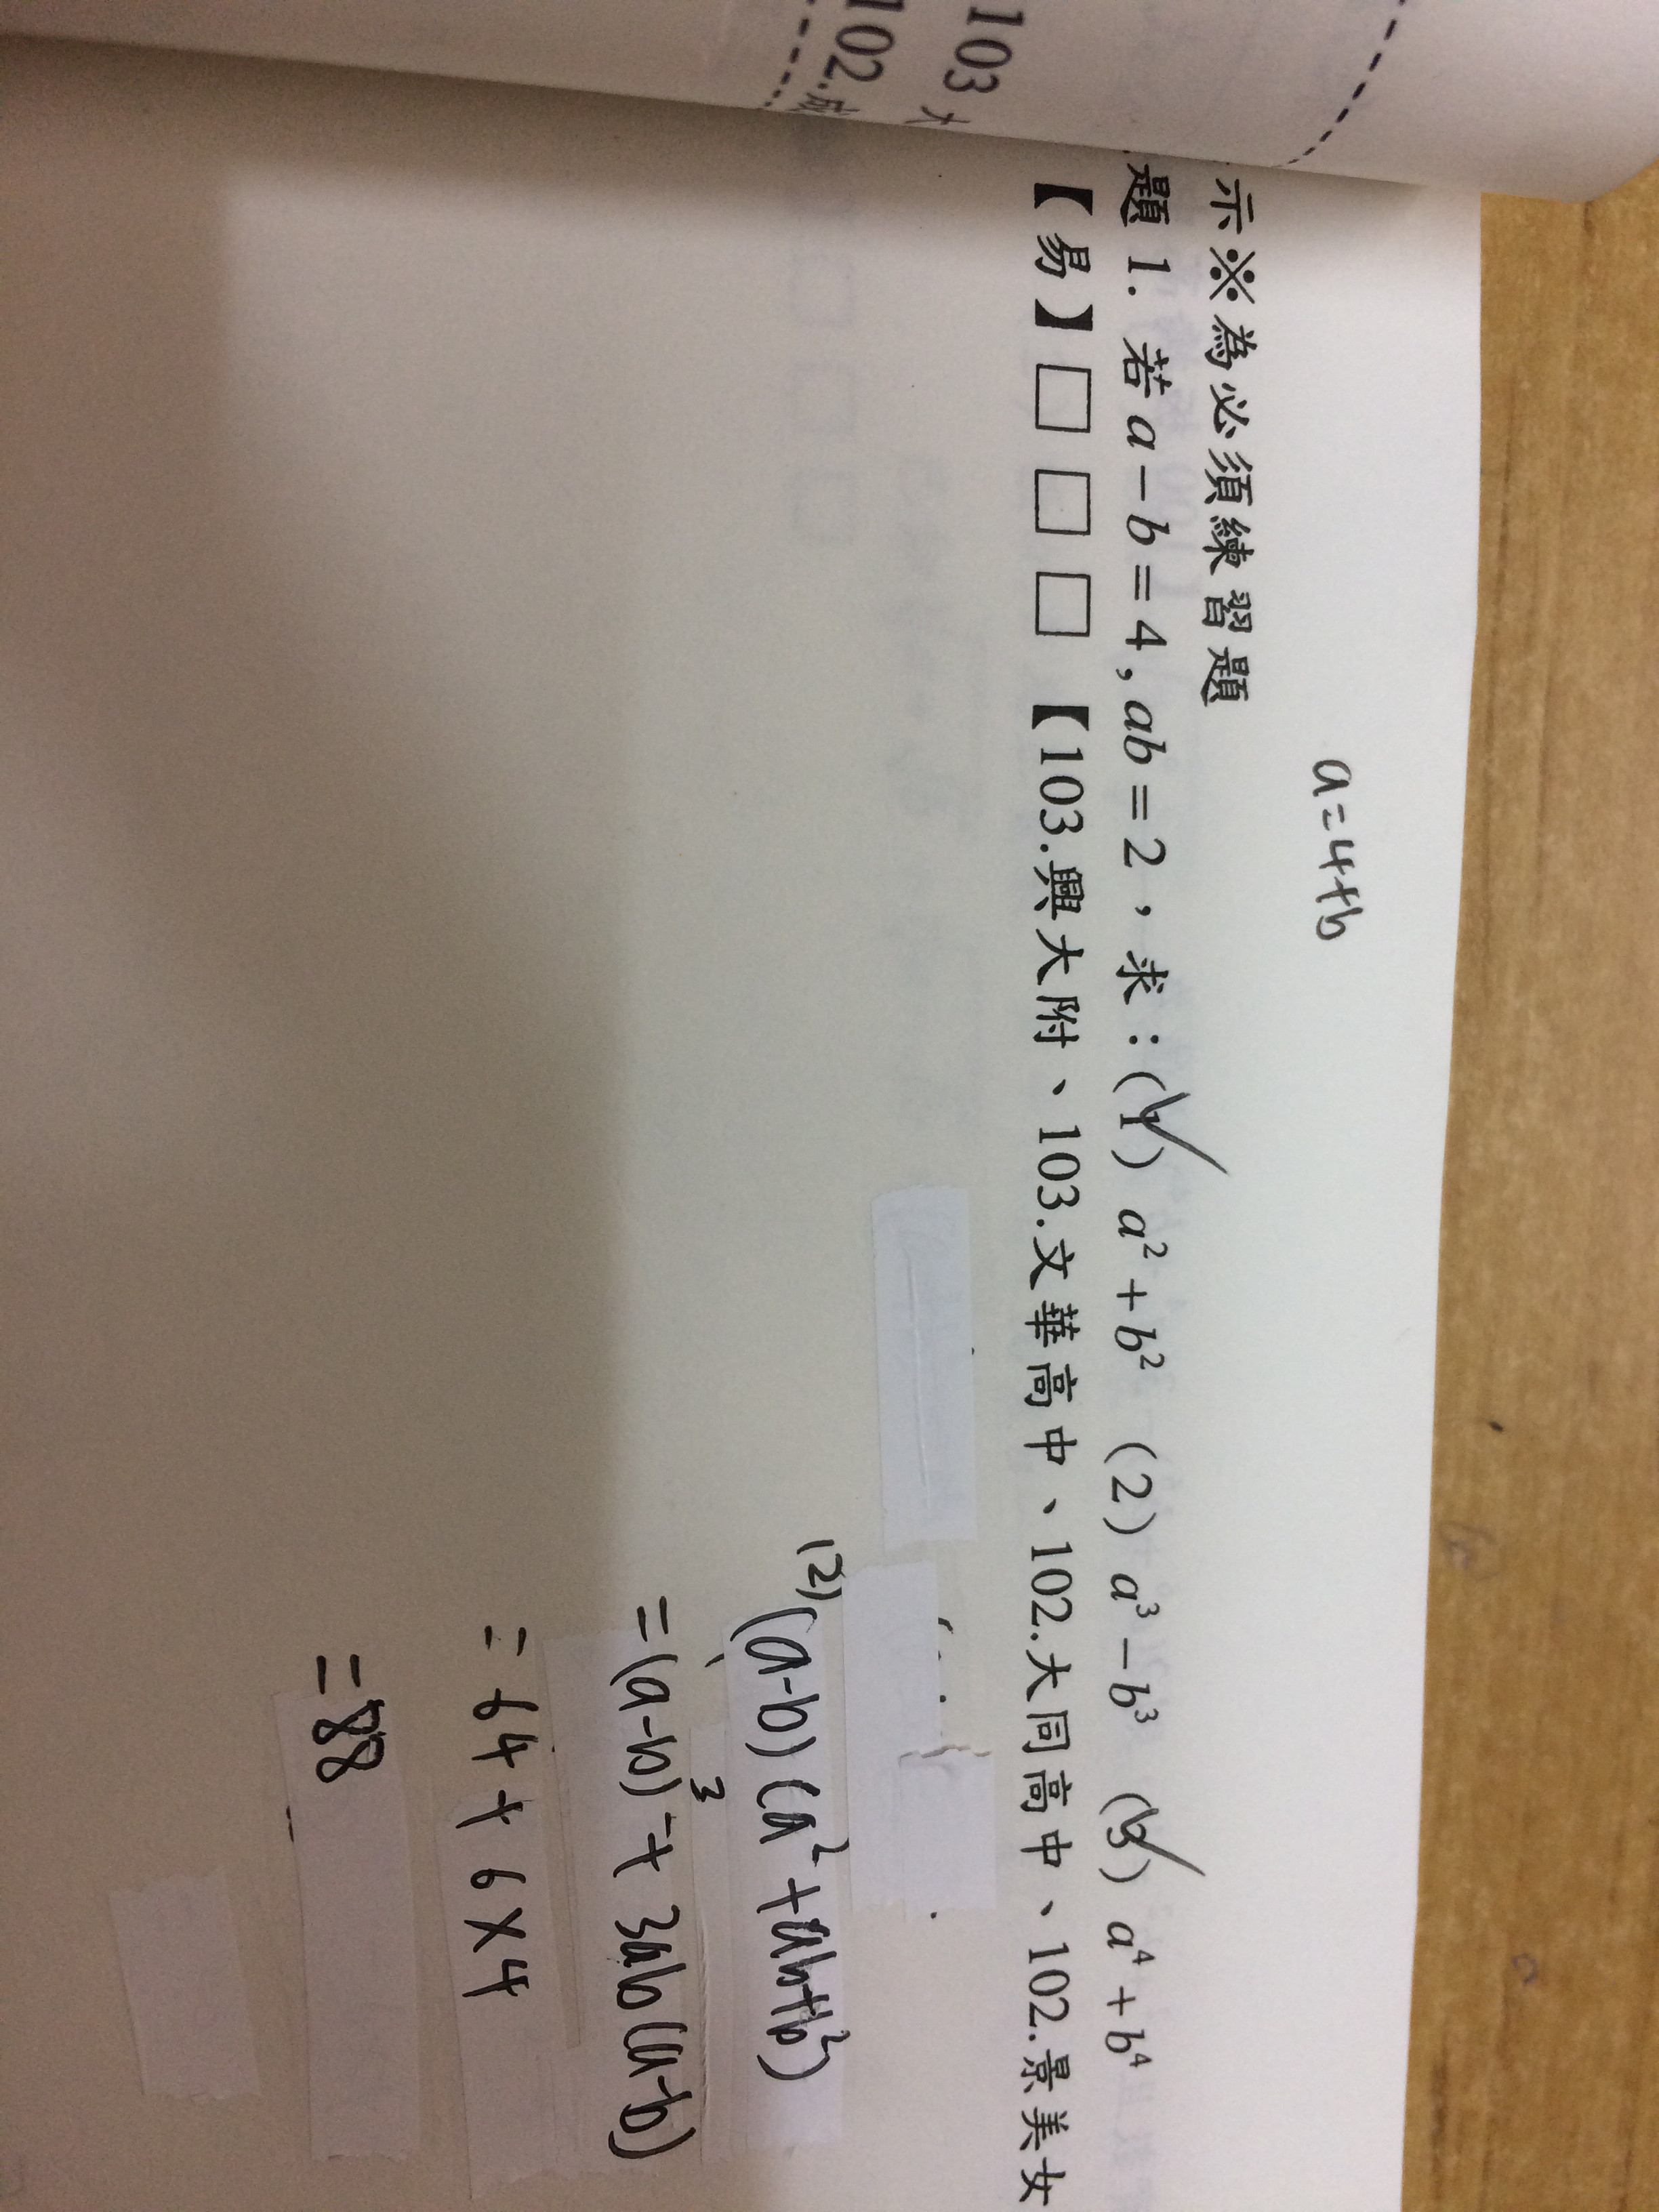 a=4+b
示※為必須練習題
題 1. 若 a−b=4, ab=2，求：(1) a²+b² (2) a³−b³ (3) a⁴+b⁴
【易】□ □ □ 【103.興大附、103.文華高中、102.大同高中、102.景美女
(2) (a-b)(a²+ab+b²)
=(a-b)³+3ab(a-b)
=64+6×4
=88
103 大
102.成